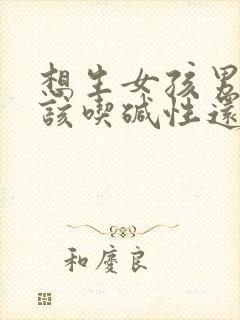 想生女孩男
該喫碱性還
和慶良